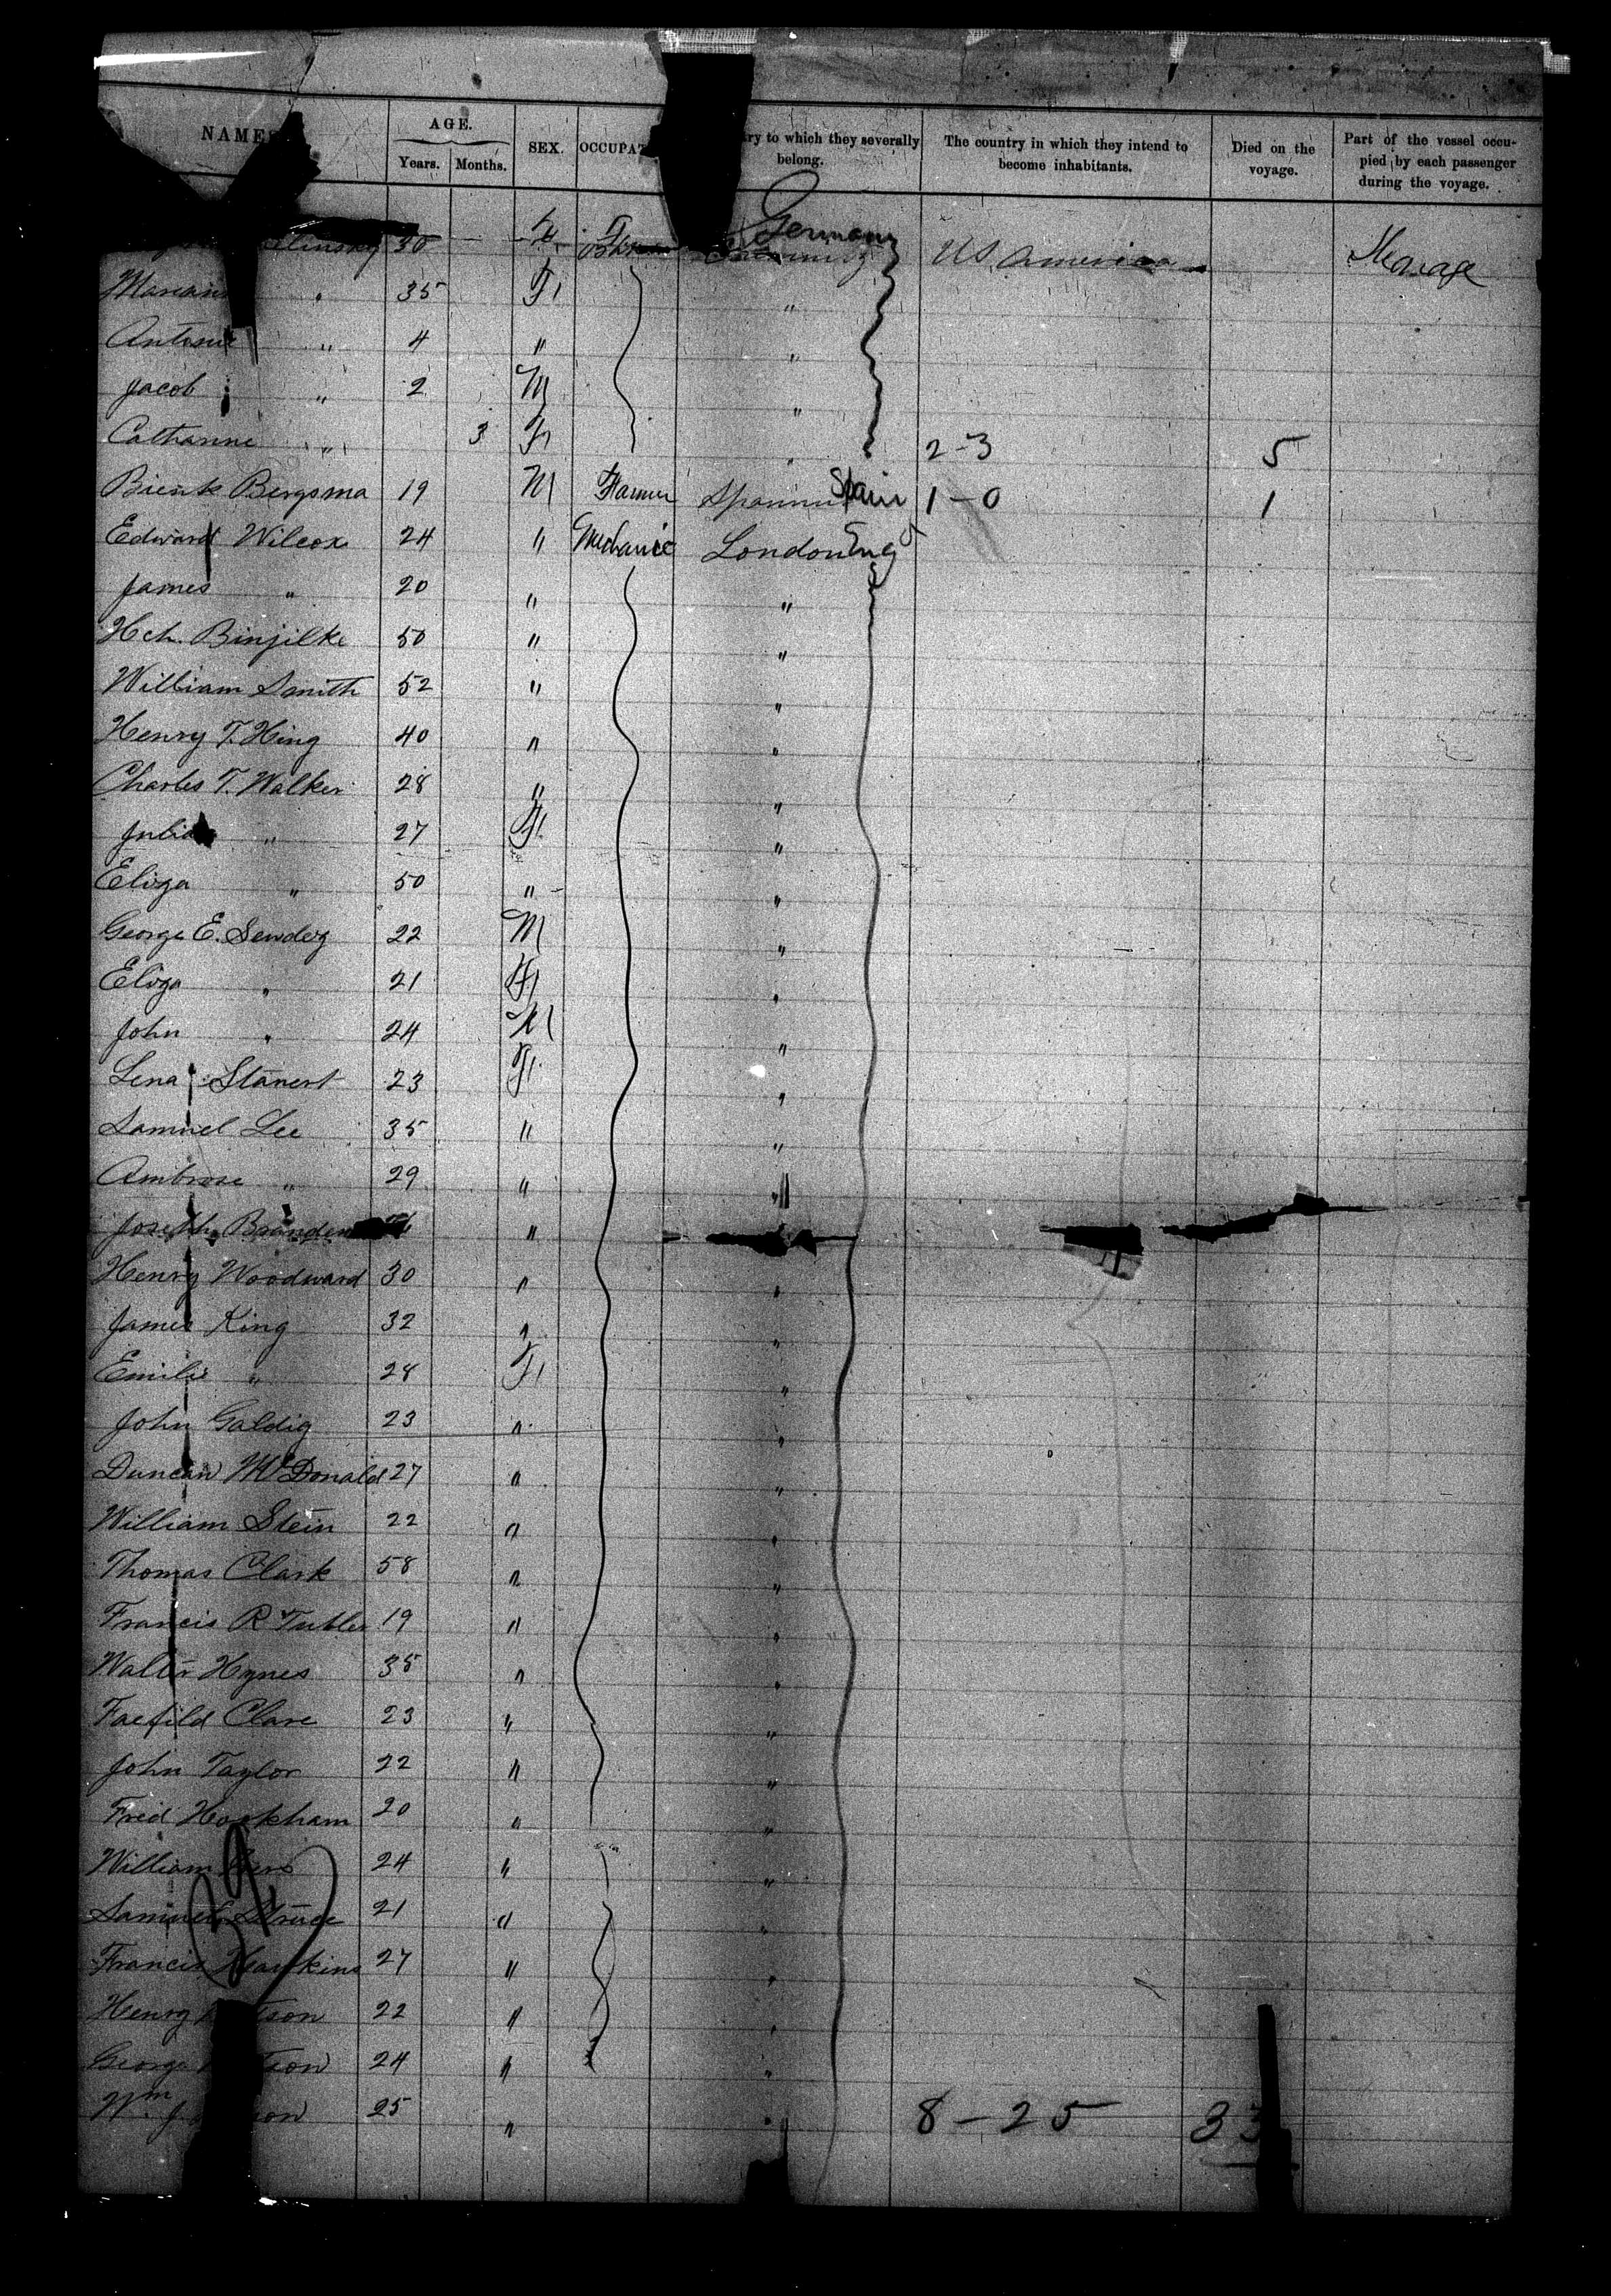 NAMES AGE. Years. Months. SEX. OCCUPAT ry to which they severally belong. The country in which they intend to become inhabitants. Died on the voyage. Part of the vessel occupied by each passenger during the voyage.
linsky 30 Germany US America
" 35 F "
" 4 " "
Jacob " 2 M "
Catharine " 3 F " 2-3 5
Bergsma 19 M Farmer Spain 1-0 1
Edward Wilcox 24 " Mechanic London Eng
James " 20 " "
Hch. Binjilke 50 " "
William Smith 52 " "
Henry T. Hing 40 " "
Charles T. Walker 28 " "
Julia " 27 F "
Eliza " 50 " "
George E. 22 M "
Eliza " 21 F "
John " 24 M "
Lena Stanert 23 F "
Samuel Lee 35 " "
Ambrose " 29 " "
Joseph "
Henry Woodward 30 " "
James King 32 " "
Emilie " 28 F "
John Galdig 23 " "
Duncan McDonald 27 " "
William Stein 22 " "
Thomas Clark 58 " "
Francis R 19 " "
Walter Hynes 35 " "
Clare 23 " "
John Taylor 22 " "
Fred Hookham 20 " "
William 24 " "
Samuel 21 " "
Francis 27 " "
Henry tson 22 " "
George tson 24 " "
Wm J. son 25 " " 8-25 33